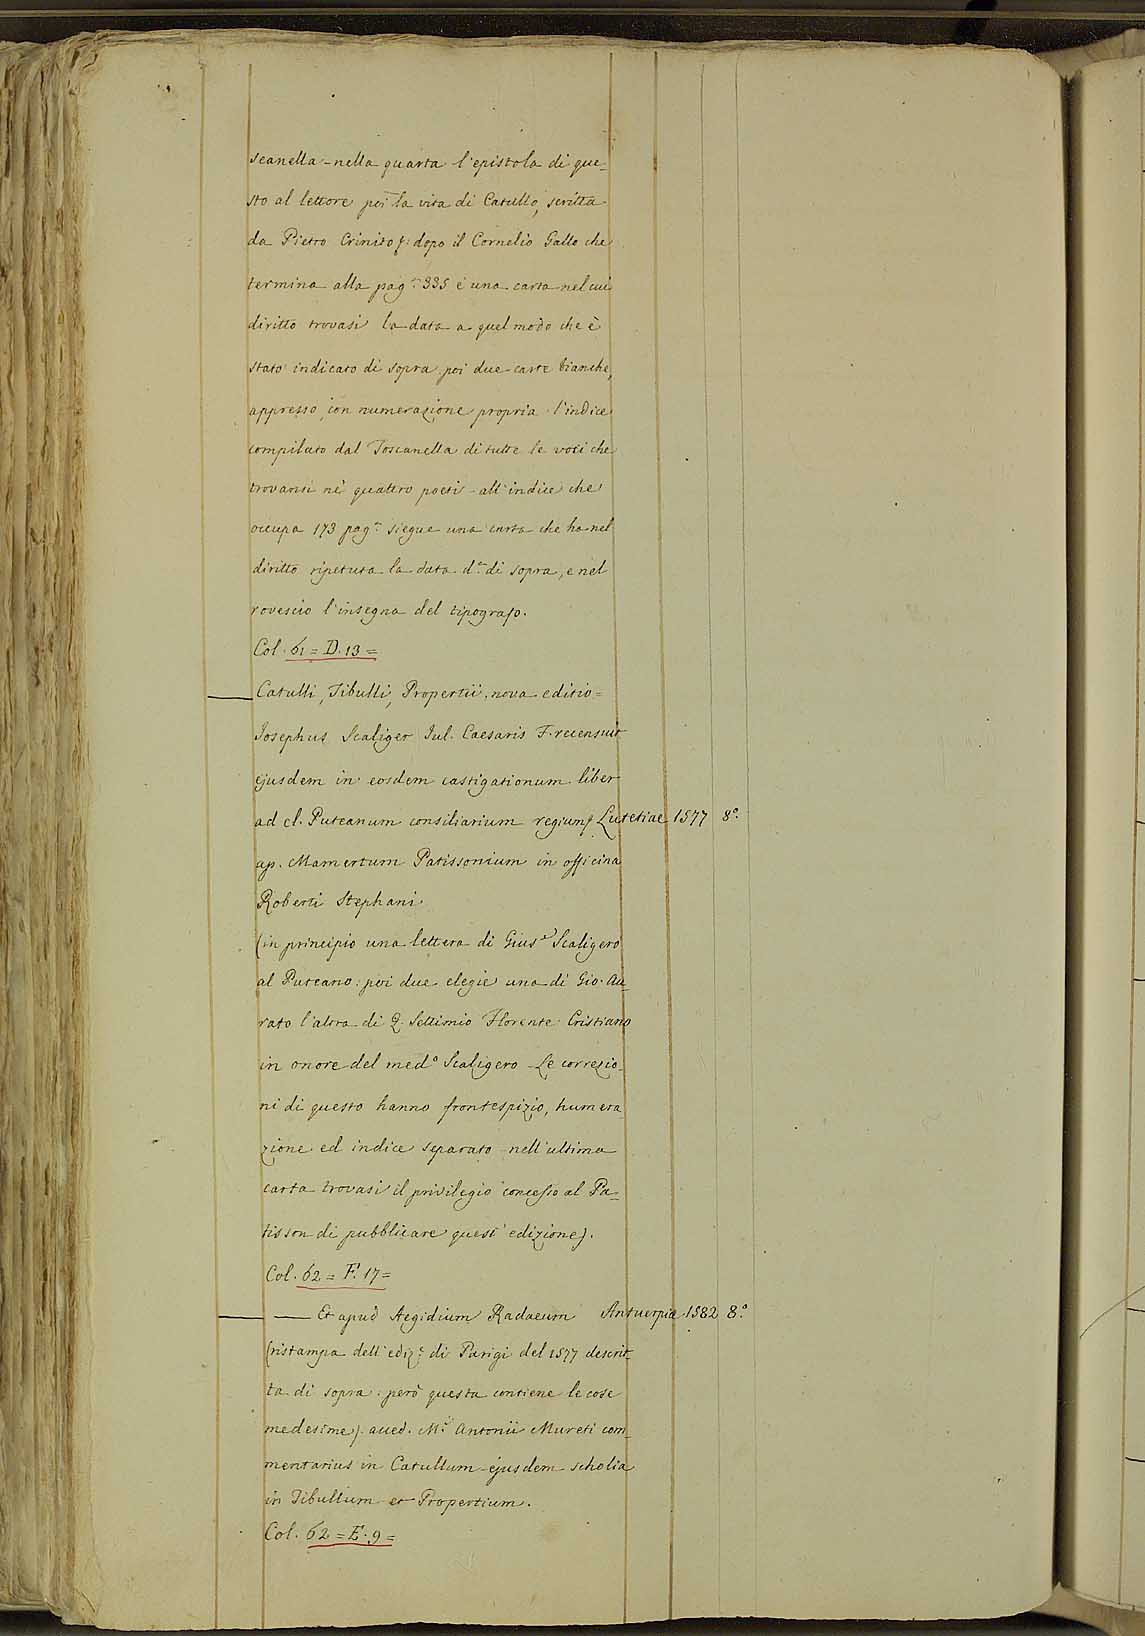 scanella - nella quarta l'epistola di que=
sto al lettore poi la vita di Catullo, scritta
da Pietro Crinito): dopo il Cornelio Gallo che
termina alla pag.ª 335 è una carta nel cui
diritto trovasi la data a quel modo che è
stato indicato di sopra poi due carte bianche,
appresso, con numerazione propria l'indice
compilato dal Toscanella di tutte le voci che
trovansi ne' quattro poeti - all'indice che
occupa 173 pag.ª siegue una carta che ha nel
diritto ripetuta la data d.ª di sopra, e nel
rovescio l'insegna del tipografo.
Col. 61 = D. 13 =
— Catulli, Tibulli, Propertii, nova editio =
Josephus Scaliger Jul. Caesaris F. recensuit
ejusdem in eosdem castigationum liber
ad cl. Puteanum consiliarium regium) Lutetiae 1577 8.º
ap. Mamertum Patissonium in officina
Roberti Stephani
(in principio una lettera di Gius.e Scaligero
al Puteano: poi due elegie una di Gio. Au=
rato l'altra di Q. Settimio Florente Cristiano
in onore del med.º Scaligero - Le correzio=
ni di questo hanno frontespizio, numera=
zione ed indice separato - nell'ultima
carta trovasi il privilegio concesso al Pa=
tisson di pubblicare quest'edizione).
Col. 62 = F. 17 =
— — Et apud Aegidium Radaeum Antuerpiae 1582 8.º
(ristampa dell'ediz.e di Parigi del 1577 descrit=
ta di sopra: però questa contiene le cose
medesime). acced. M. Antonii Mureti com=
mentarius in Catullum - ejusdem scholia
in Tibullum et Propertium.
Col. 62 = E. 9 =